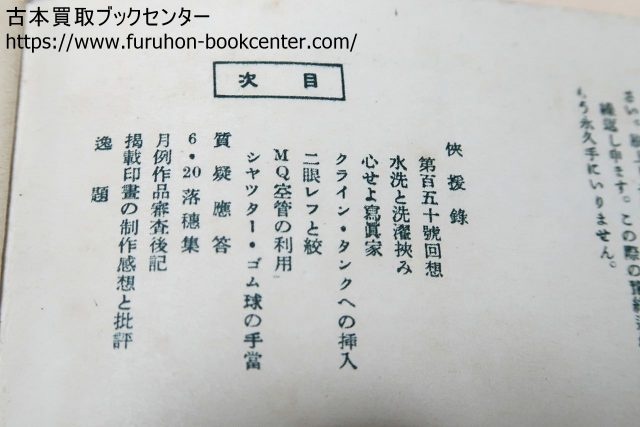 古本買取ブックセンター
https://www.furuhon-bookcenter.com/
繰返し申します。この際の
もう永久手にいりません。
目次
俠援錄
第百五十號回想
水洗と洗濯挾み
心せよ寫眞家
クライン・タンクへの挿入
二眼レフと絞
MQ空管の利用
シャツター・ゴム球の手當
質疑應答
6・20落穗集
月例作品審査後記
揭載印畫の制作感想と批評
逸題